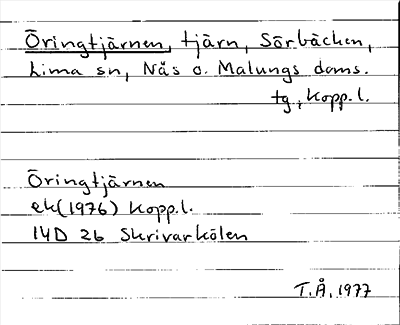 Öringtjärnen, tjärn, Sörbäcken,
Lima sn, Nås o. Malungs doms.
tg, Kopp.l.
Öringtjärnen
ek(1976) Kopp.l.
14D 2b Skrivarkölen
T.Å. 1977